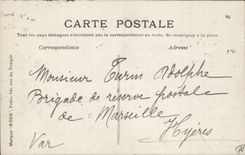 CARTE POSTALE
Tous les pays étrangers n'acceptent pas la correspondance au recto. Se renseigner à la poste
Correspondance
Adresse
Monsieur Turin Adolphe
Brigade de réserve postale
de Marseille
Hyères
Var